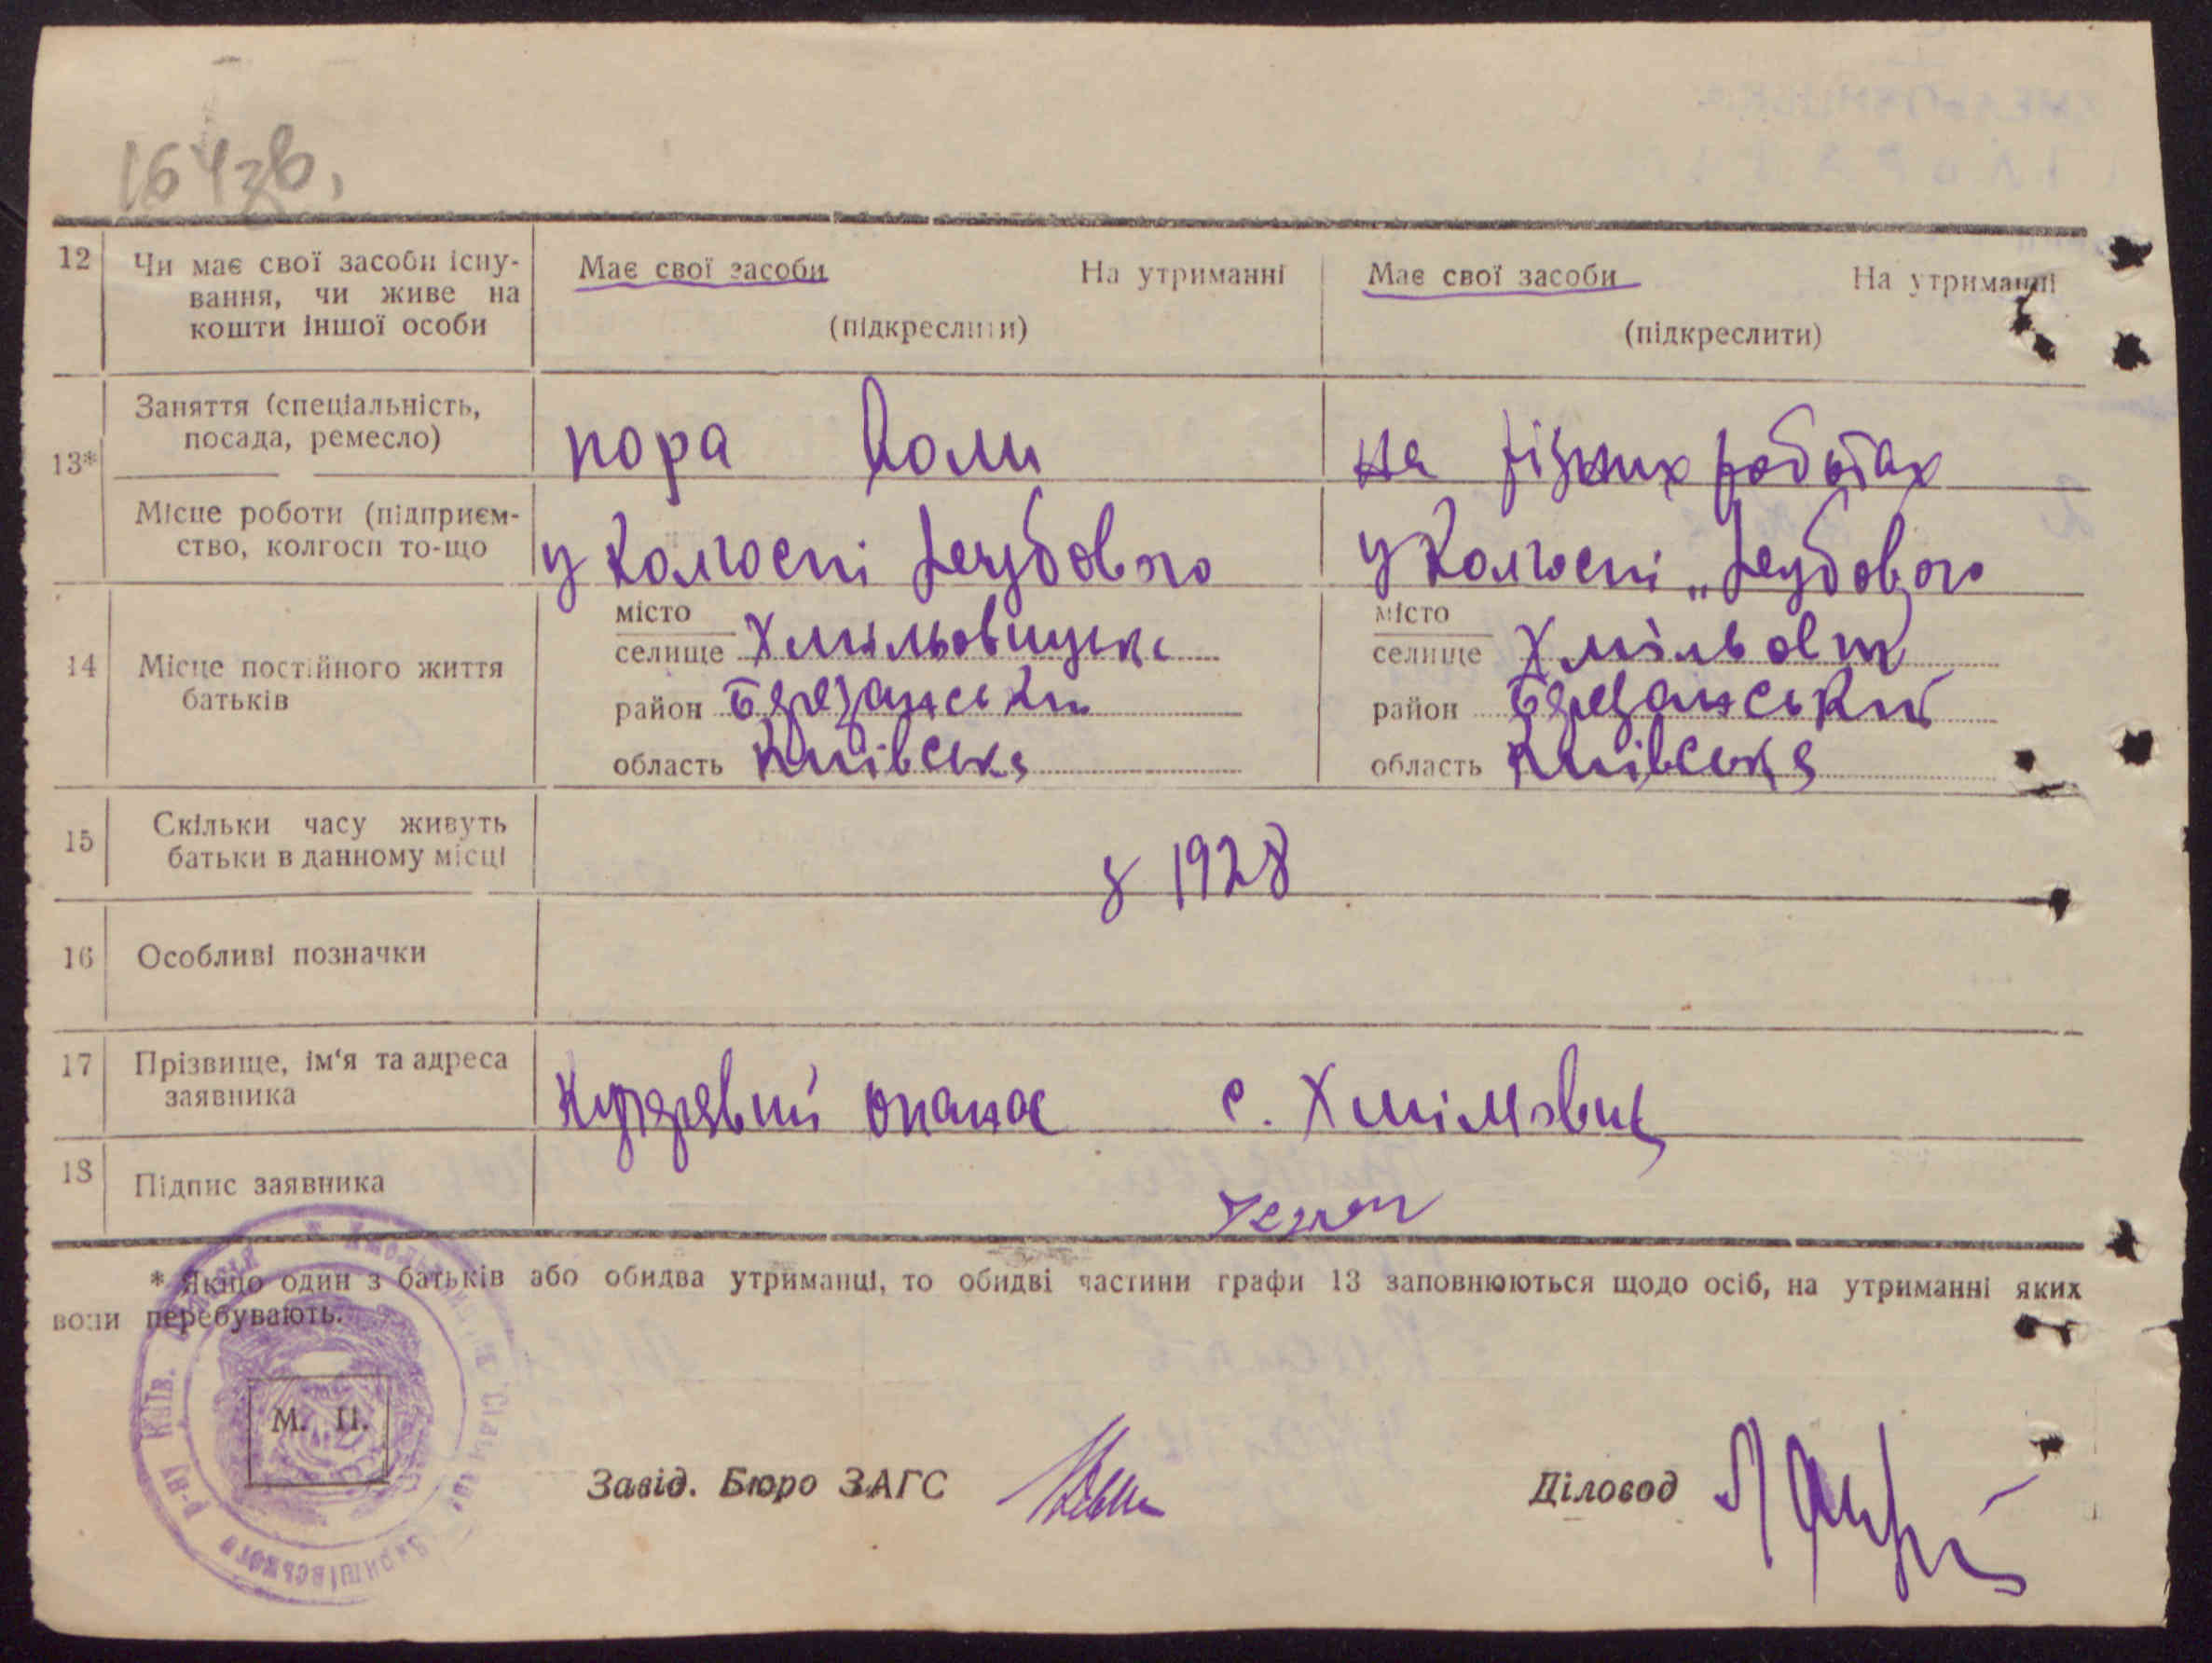 164зв.
12 Чи має свої засоби існу-
вання, чи живе на
кошти іншої особи
Має свої засоби На утриманні
(підкреслити)
Має свої засоби На утриманні
(підкреслити)
13*
Заняття (спеціальність,
посада, ремесло)
на різних роботах
Місце роботи (підприєм-
ство, колгосп то-що
у колгоспі
у колгоспі
14 Місце постійного життя
батьків
місто
селище
район Березанськи
область Київська
місто
селище
район Березанський
область Київська
15 Скільки часу живуть
батьки в данному місці
з 1928
16 Особливі позначки
17 Прізвище, ім'я та адреса
заявника
Опанас с.
18 Підпис заявника
* Якщо один з батьків або обидва утриманці, то обидві частини графи 13 заповнюються щодо осіб, на утриманні яких
вони перебувають.
М. П.
Завід. Бюро ЗАГС
Діловод